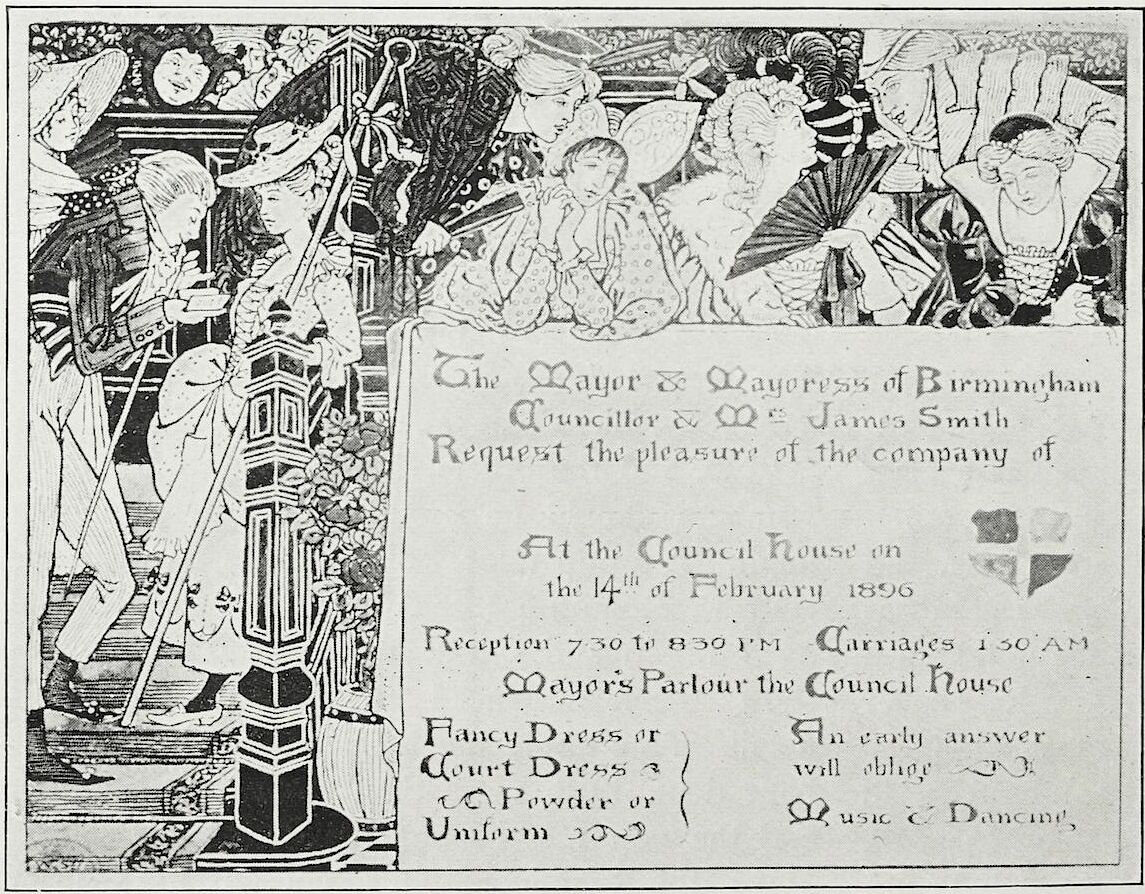 The Mayor & Mayoress of Birmingham
Councillor & Mrs James Smith
Request the pleasure of the company of
At the Council House on
the 14th of February 1896
Reception 7 30 to 8 30 PM Carriages 1 30 AM
Mayor's Parlour the Council House
Fancy Dress or
Court Dress &
Powder or
Uniform
An early answer
will oblige
Music & Dancing